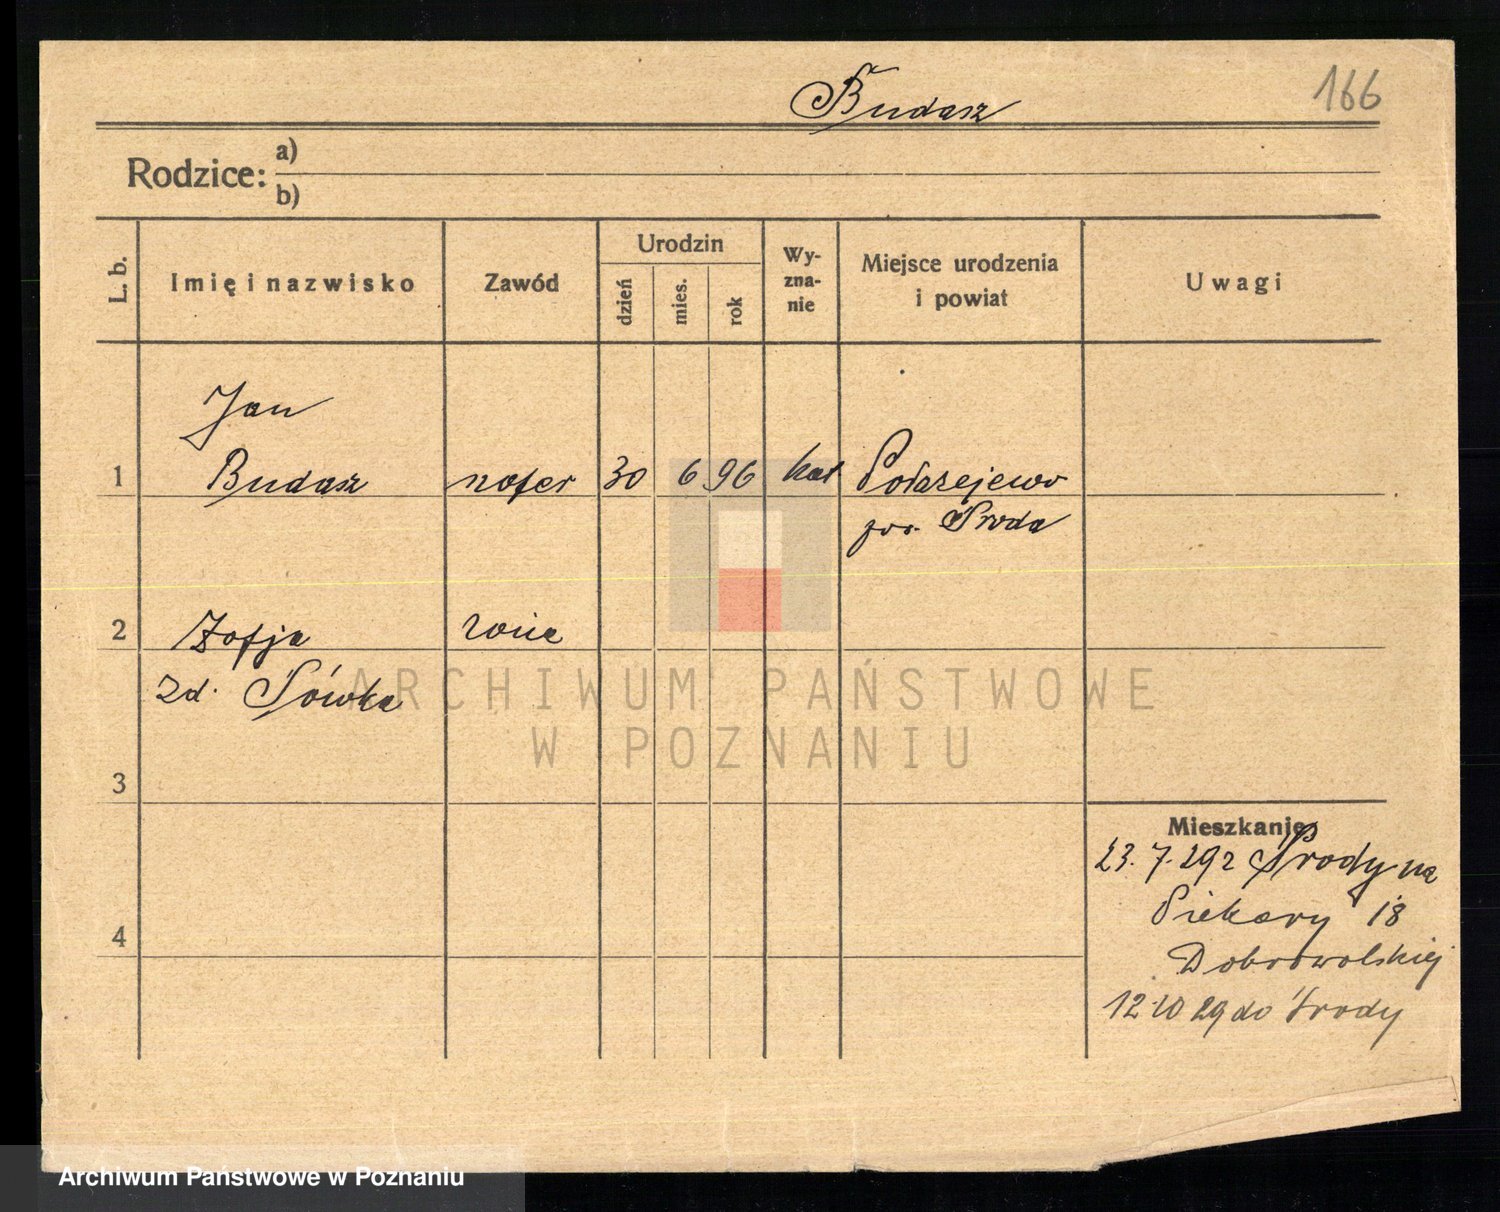 Budasz
166
Rodzice: a)
b)
L. b.
Imię i nazwisko
Zawód
Urodzin
dzień
mies.
rok
Wy-
zna-
nie
Miejsce urodzenia
i powiat
Uwagi
Jan
1 Budasz szofer 30 6 96 kat Połażejewo
pow. Środa
2 Zofja
zd. Sówka
ARCHIWUM PAŃSTWOWE
W POZNANIU
3
Mieszkanie
23.7.29 z Środy na
Piekary 18
4 Dobrowolskiej
12.10 29 do Środy
Archiwum Państwowe w Poznaniu